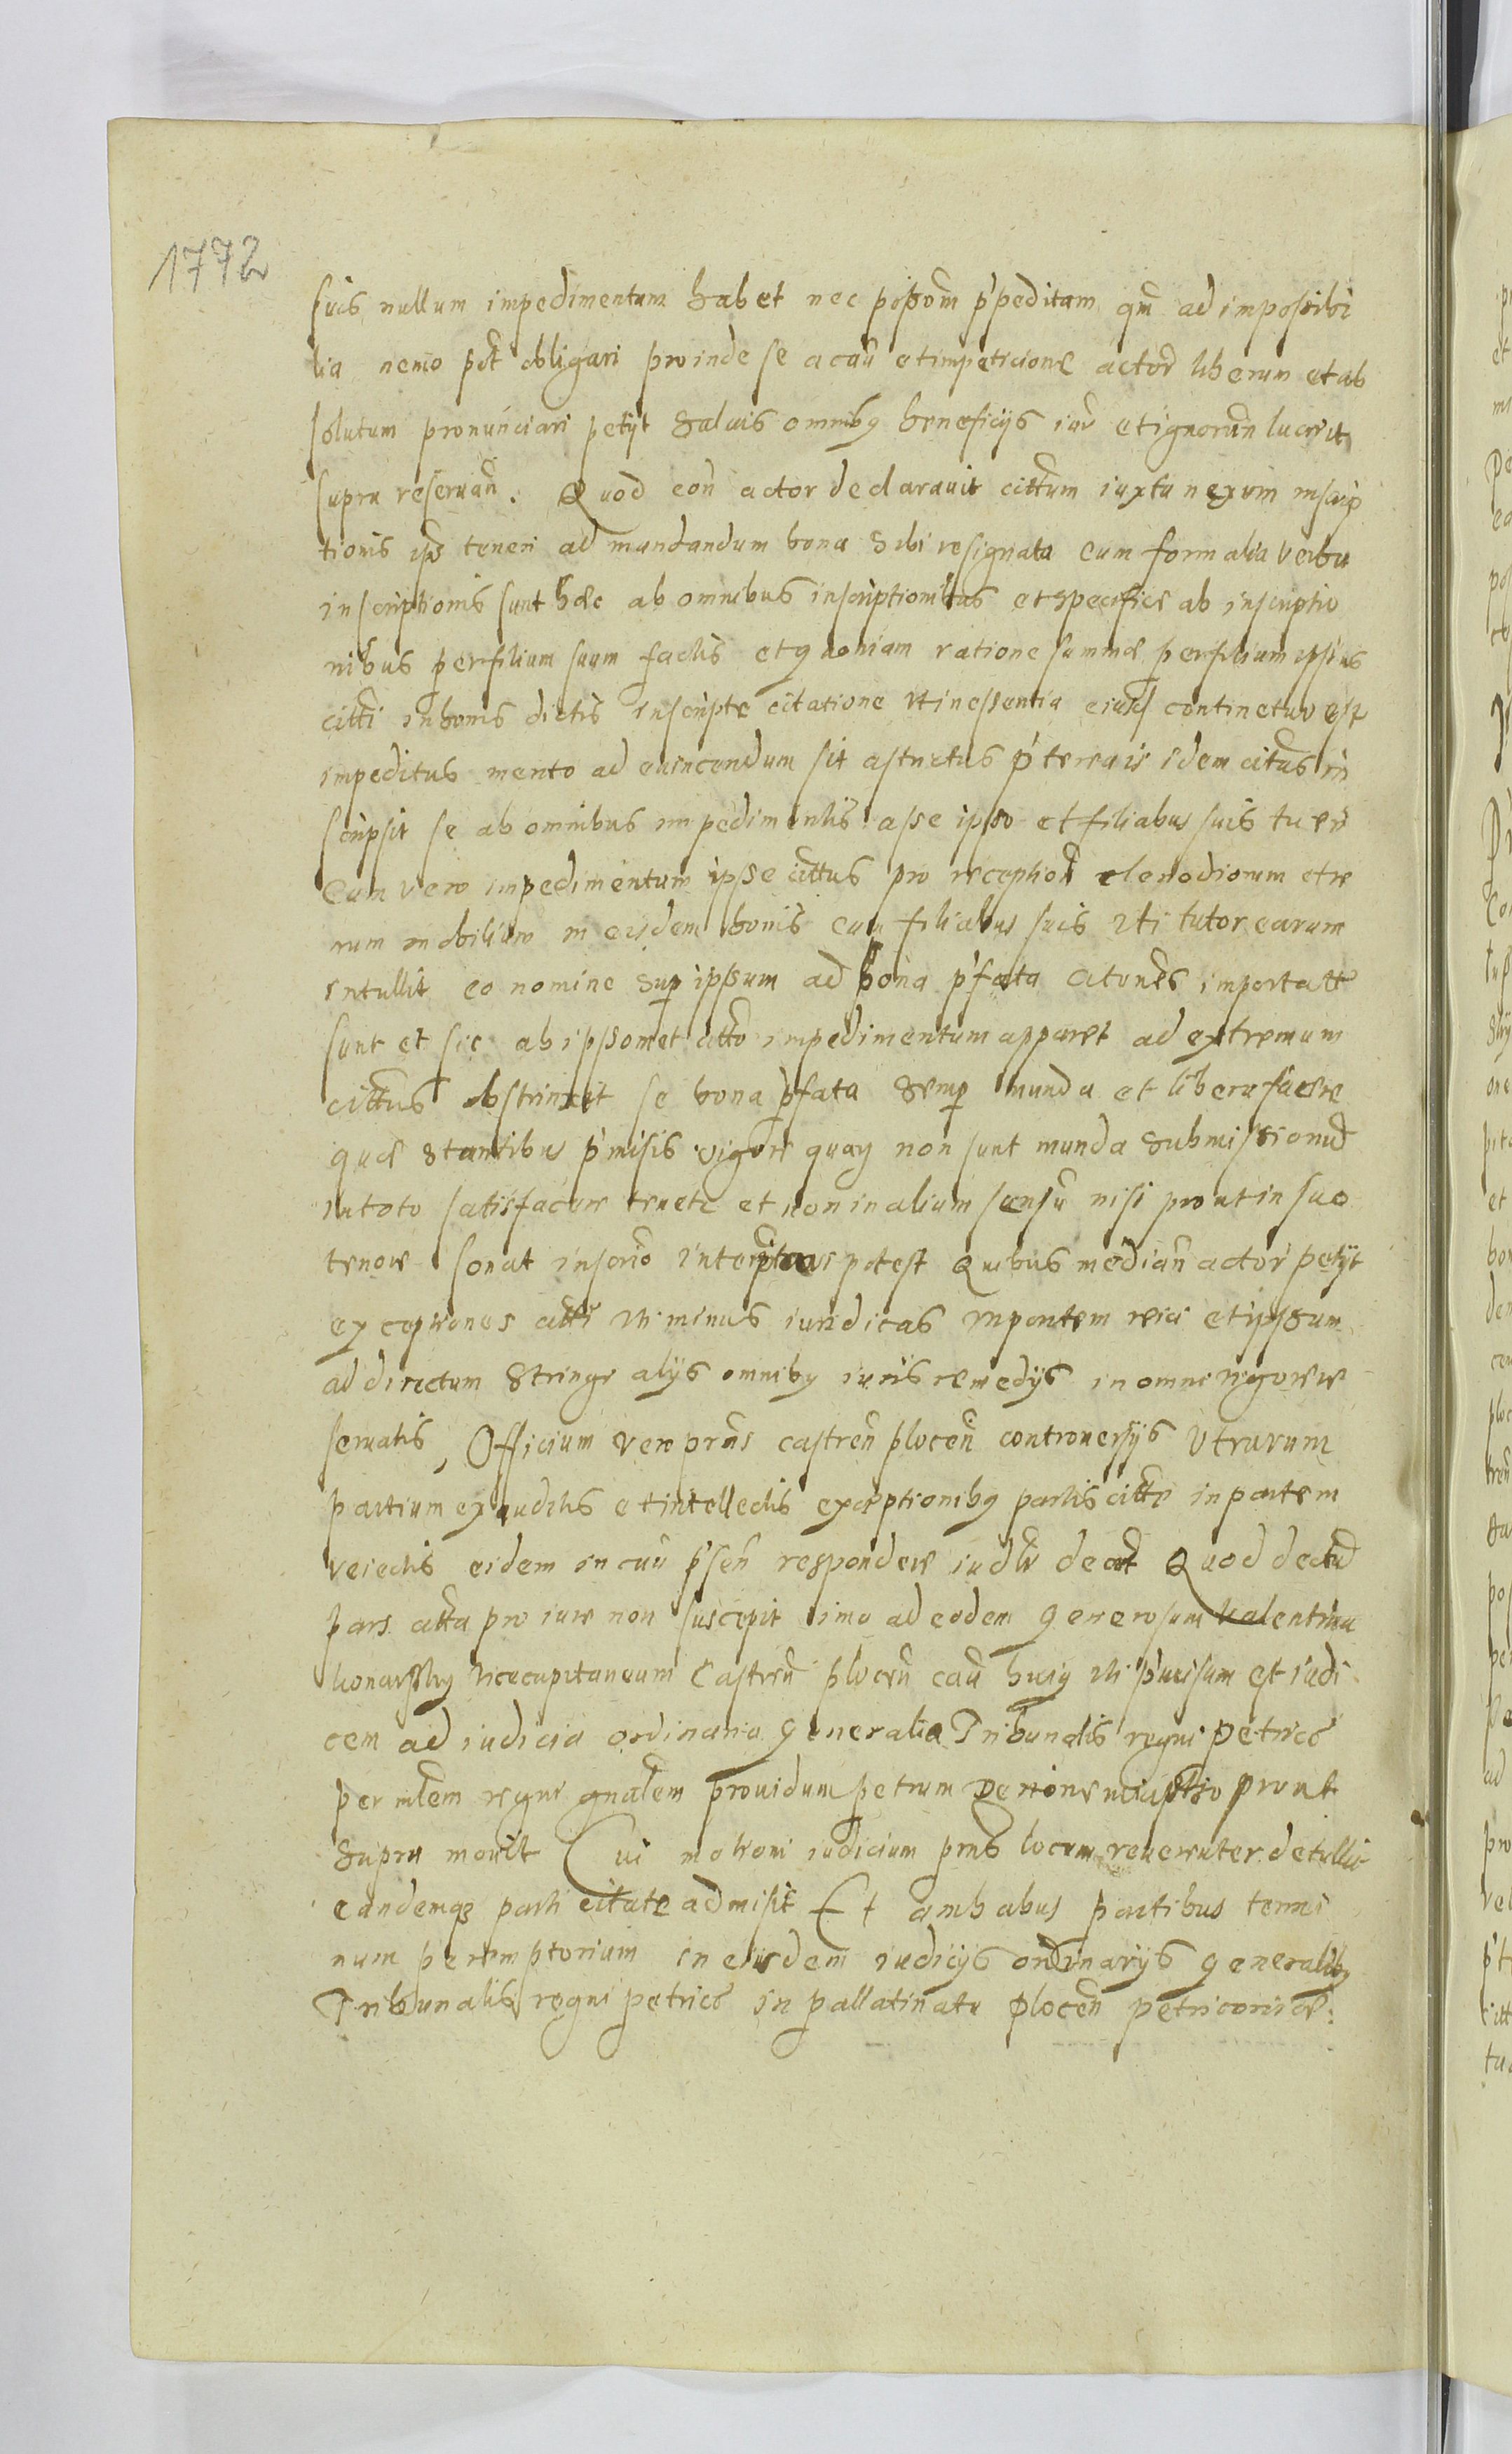 1772
suis nullum impedimentum habet nec possom p'peditam qm ad impossibi
lia nemo pot obligari proinde se a cau et impeticione actor liberum et ab
solutum pronunciari petyt Saluis omnibq beneficijs iur et ignorun lucrit
supra reseruan. Quod eon actor declarauit cittum iuxta nexum inscrip
tionis ips teneri ad mundandum bona Sibi resignata Cum formalia verba
inscriptionis sunt hæc ab omnibus inscriptionibus et specifice ab inscriptio
nibus per filium suum factis et quoniam ratione summæ per filium ipsius
citti in bonis dictis inscripte citatione Vti in essentia eiusd continetur est
impeditus merito ad euincendum sit astrictus p'terea is idem cittus in
scripsit se ab omnibus impedimentis a sse ipso et filiabus suis tueri
Cum vero impedimentum ipse cittus pro reception clenodiorum et re
rum mobilium in eisdem bonis cum filiabus suis Vti tutor earum
intullit eo nomine Sup ipsum ad bona p'fata citones importatte
sunt et sic ab ipsomet citto impedimentum apparet ad extremum
cittus obstrinxit se bona p'fata Semp munda et libera facere
quæ Stantibus p'missis vigore quaq non sunt munda Submissionid
in toto satisfacere tenetr et non in alium sensu nisi prout in suo
tenore sonat inscrio interptrari potest Quibus median actor petyt
exceptiones citti Vti minus iuridicas in partem reici et ipsum
ad directum Stringi alijs omnibq iuris remedijs in omni rigore re
seruatis, Officium vero prns castren plocen controuersijs Vtrarum
partium exauditis et intellectis exceptionibq partis citte in partem
reiectis eidem in cau p'sen respondere iudlr decrt Quod dectud
pars citta pro iure non suscepit imo ad eodem Generosum Valentinu
Konarssky Vicecapitaneum Castren plocen cau huiq Vti p'uisum et iudi
cem ad iudicia ordinaria Generalia Tribunalis regni petrico
per mlem regni gnalem prouidum petrum prout
Supra mouit Cui motioni iudicium prns locum reuerenter detullit
eandemqz parti citate admisit Et ambabus partibus termi
num peremptorium in eisdem iudicijs ordinarijs generalibq
Tribunalis regni petrico in pallatinatu plocen petricouiæ.